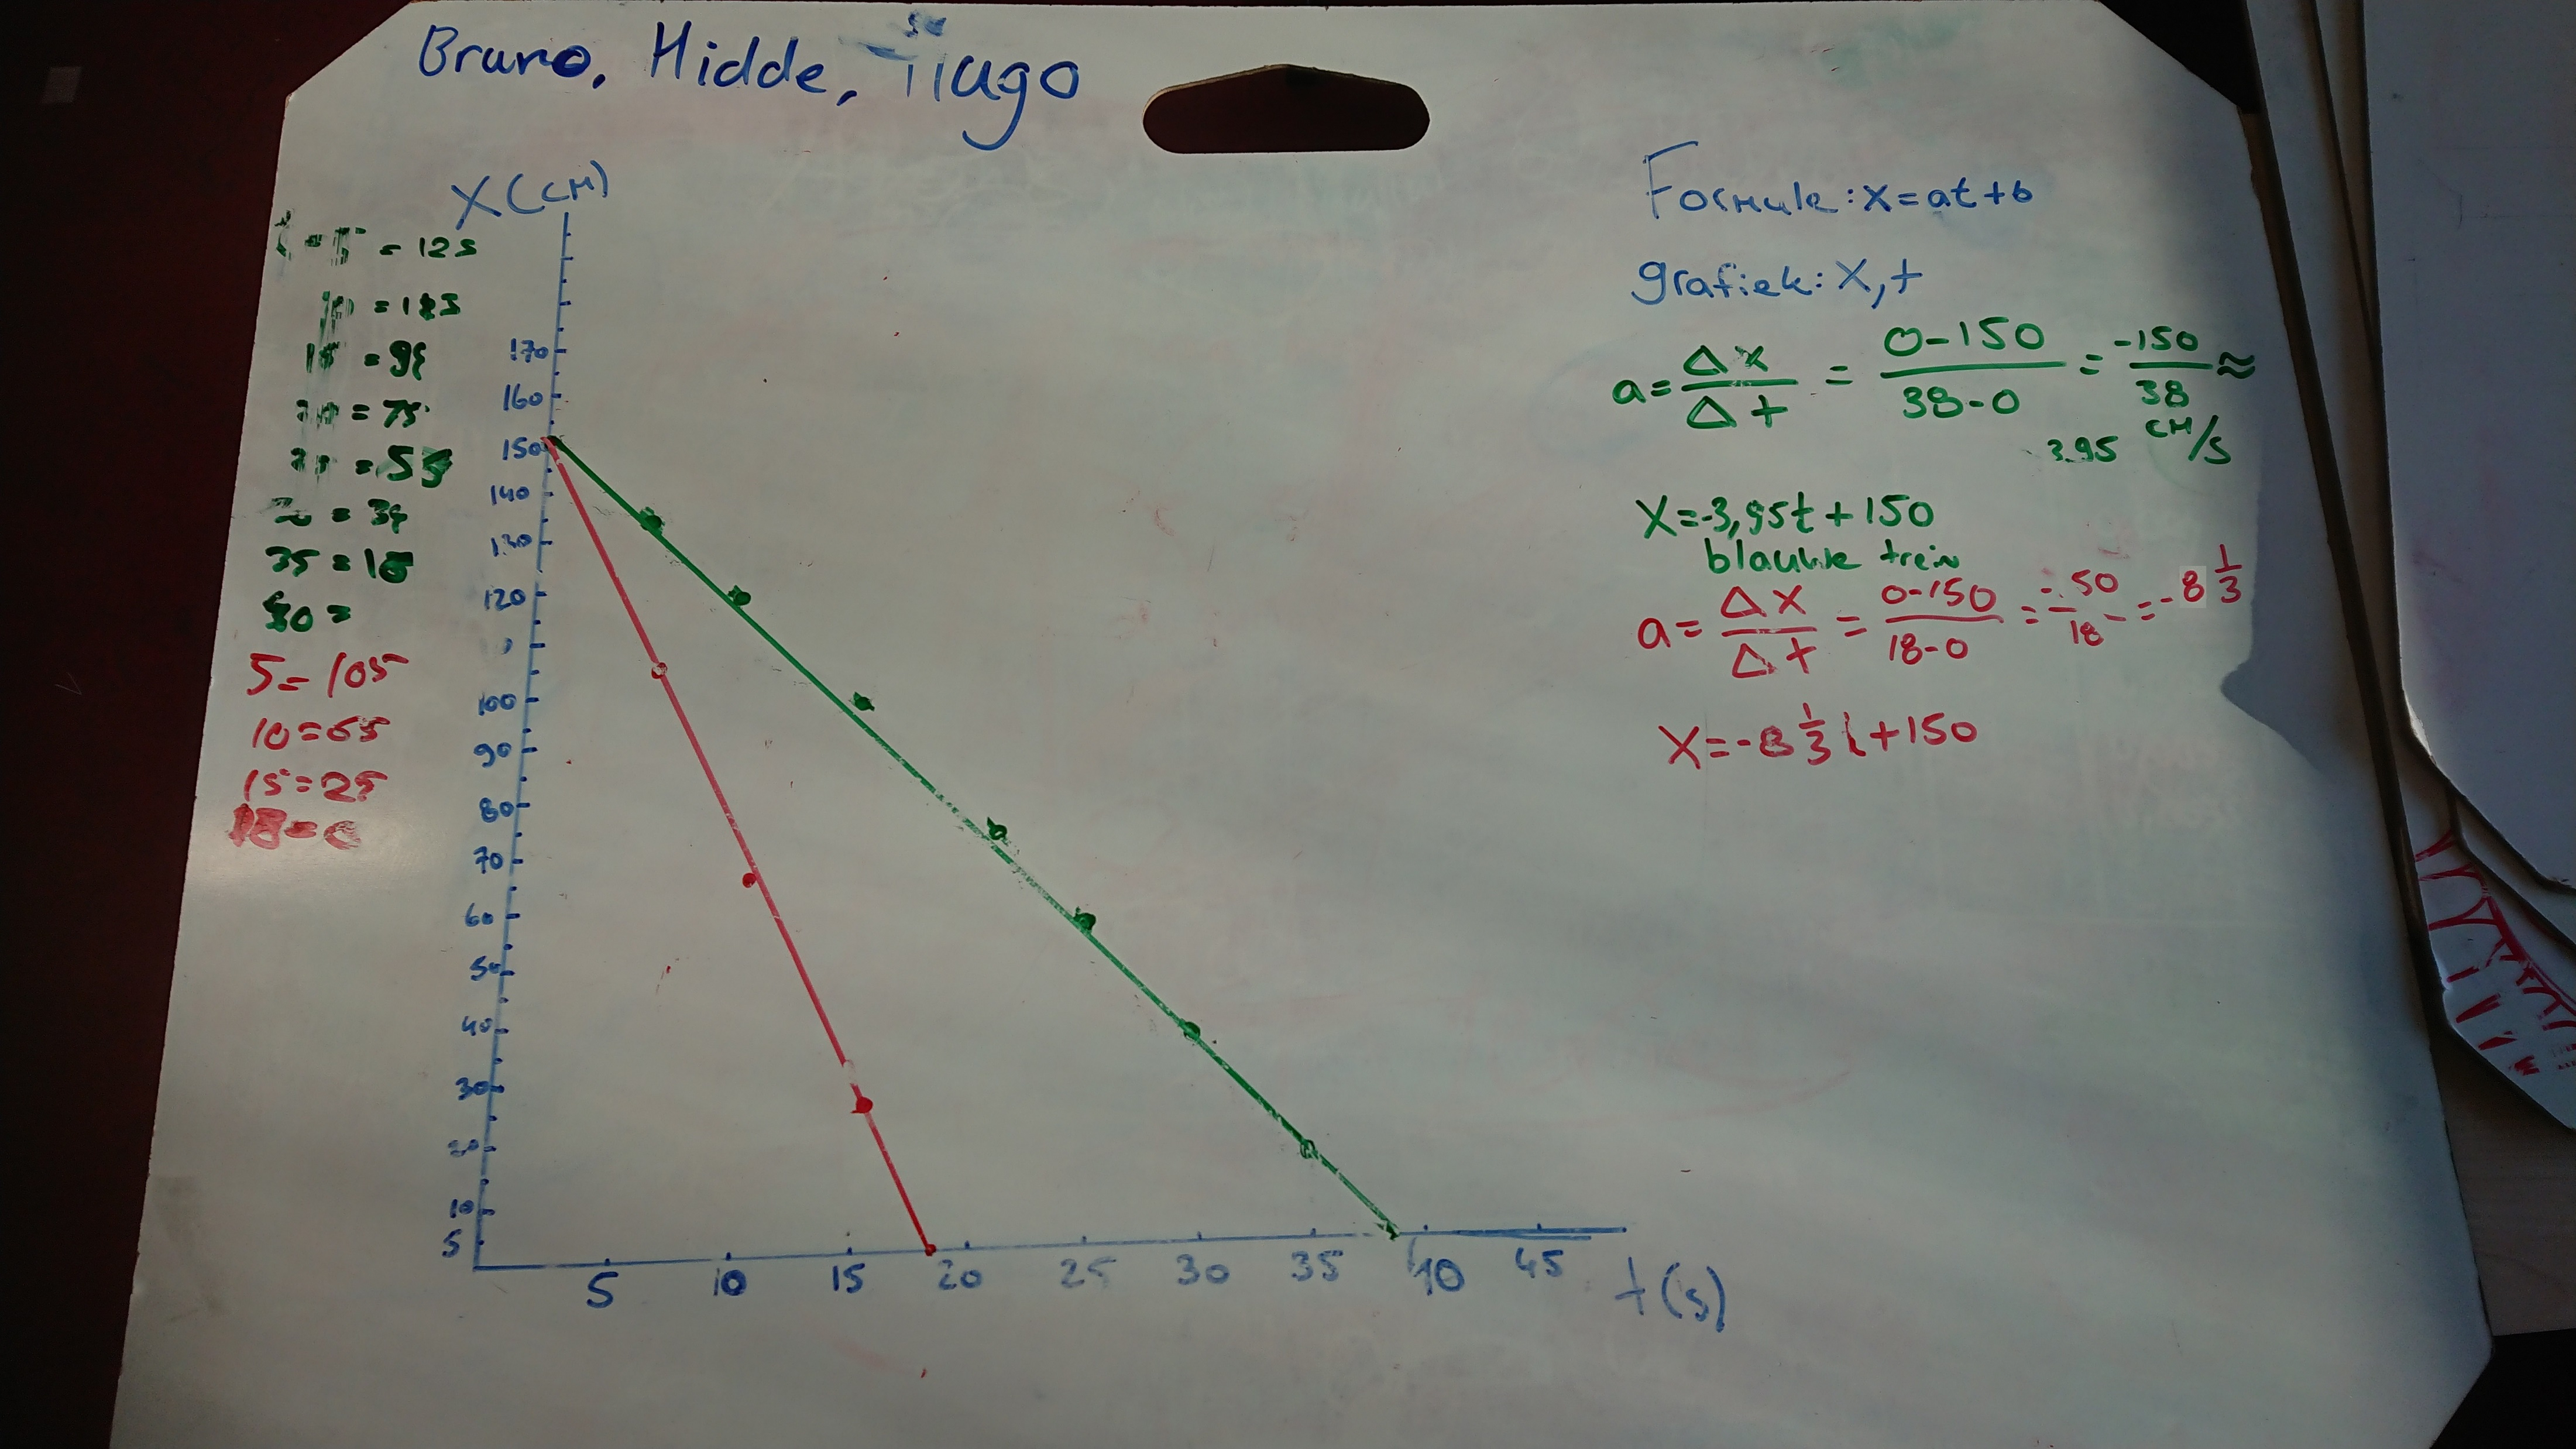 Bruno, Hidde, Tiago
X (cm)
= 125
= 115
15 = 95
= 75
= 55
= 34
35 = 18
5 = 105
10 = 65
15 = 25
18 = 0
170
160
150
140
130
120
100
90
80
70
60
50
40
30
20
10
5
5 10 15 20 25 30 35 40 45 t(s)
Formule: x = at + b
grafiek: x, t
a = Δx/Δt = 0-150/38-0 = -150/38 ≈
3.95 cm/s
X = -3,95t + 150
blauwe trein
a = Δx/Δt = 0-150/18-0 = -150/18 = -8 1/3
X = -8 1/3 t + 150